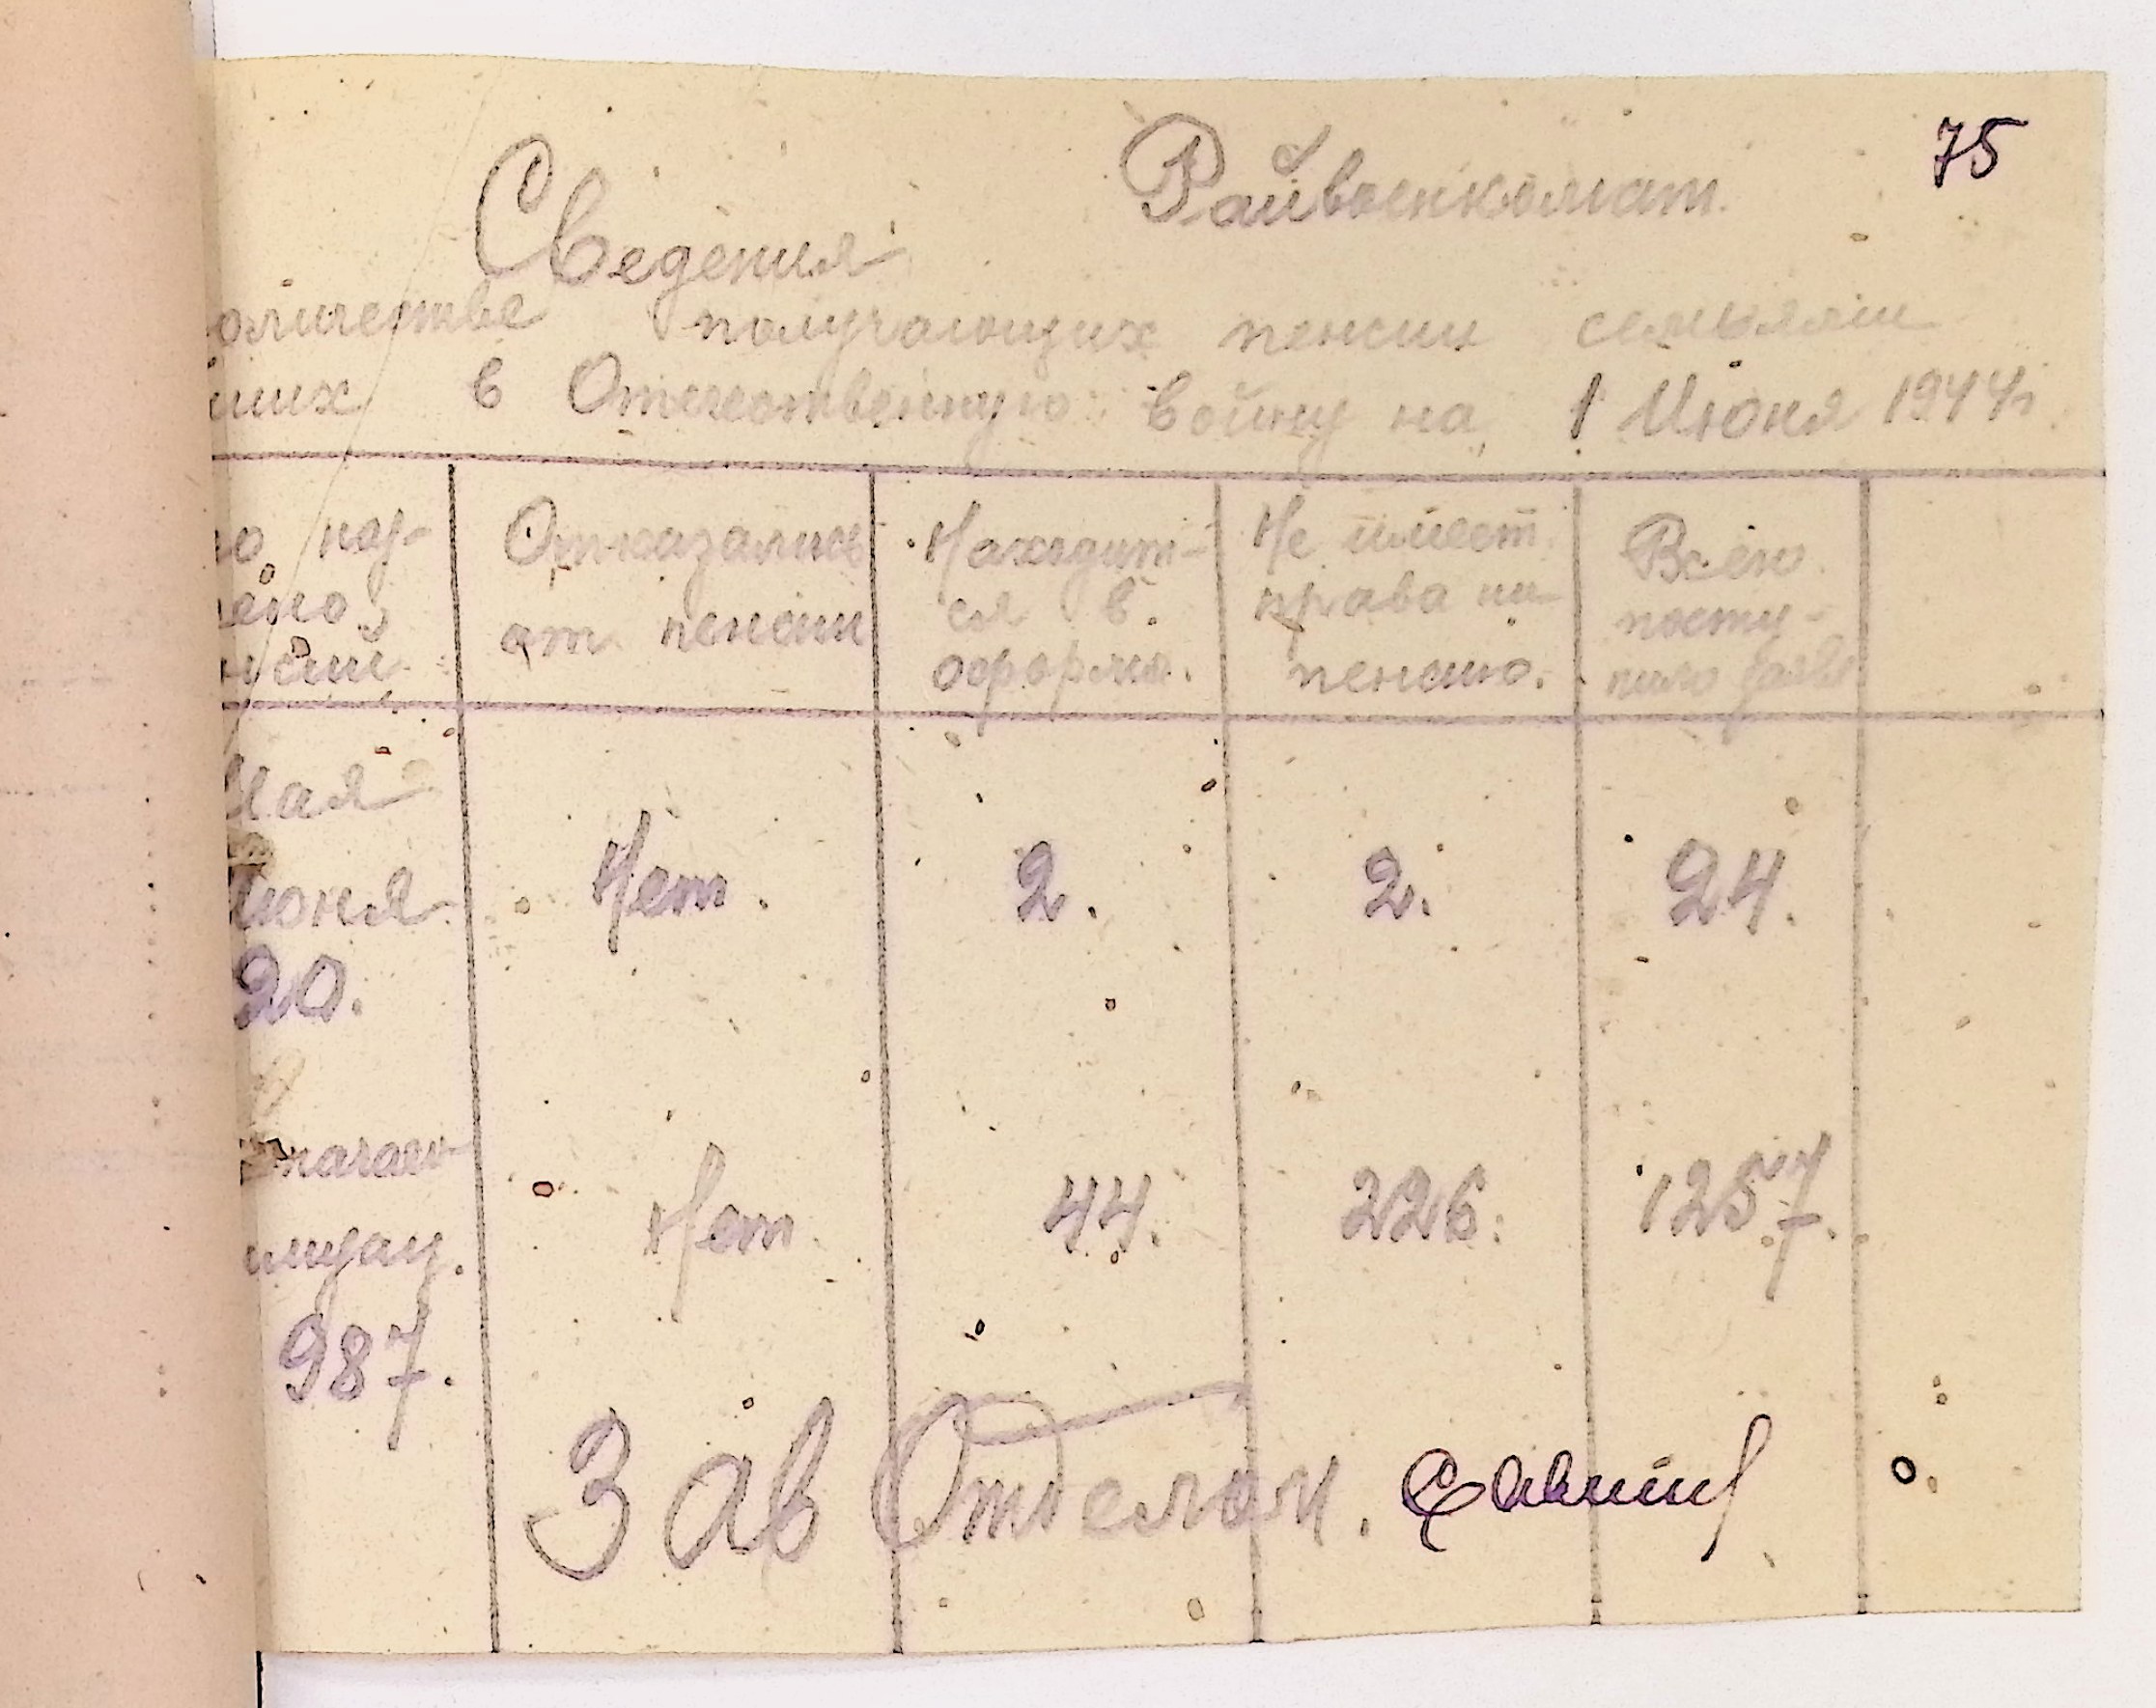 75
Райвоенкомат.
Сведения
оличестве получающих пенсии семьями
ших в Отечественную войну на 1 Июня 1944г.
о наз-
ено,
нсии
Отказались
от пенсии
Находит-
ся в
оформл.
Не имеет
права на
пенсию.
Всего
посту-
пило заяв
Мая
Июня
20.
Нет.
2.
2.
24.
начала
987.
Нет
44.
226.
1257.
Зав Отделом.